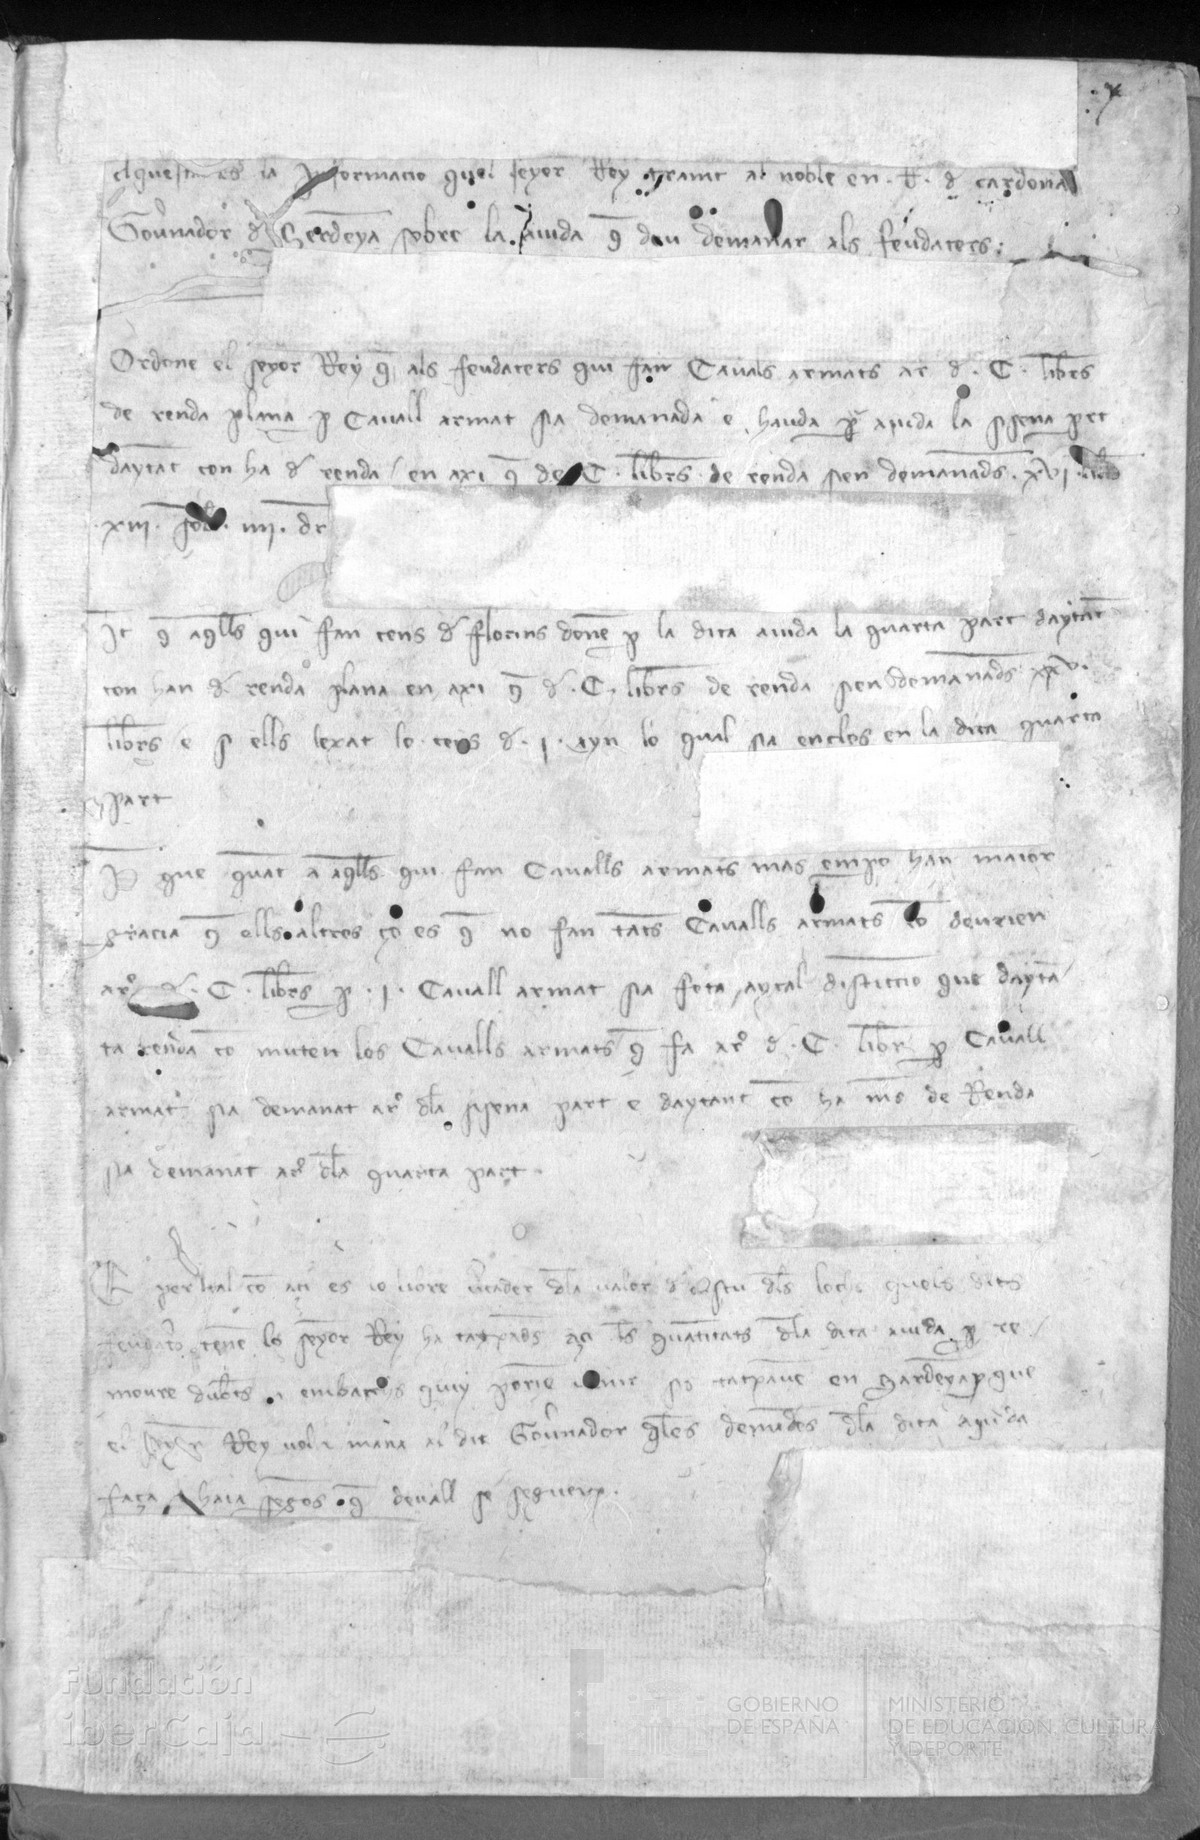 Aquesta es la Informacio quel seyor Rey tramt al noble en . R. d cardona
Gou̅nador d Serdeya sobre la aiuda q̅ deu demanar als feudaters:
Ordone el seyor Rey q̅ als feudaters qui fan Cavals armats ar d . C . libr̅s
de renda plana p Cavall armat sia demanada e hauda p̱ aiuda la sisena part
dayta̅t con ha d renda / en axi q̅ de . C . libr̅s de renda sien demanad̅s . xvi . libr̅s
. xiii . sol̅ . iiii . dr̅
It̅ q̅ aq̅lls qui fan cens d florins done̅ p la dita aiuda la quarta part dayta̅t
con han d renda plana en axi q̅ d . C . libr̅s de renda sien demanad̅s xxv .
libr̅s e si ells lexat lo cens d . i . ayn lo qual sia encles en la dita quarta
part
que qua̅t a aq̅lls qui fan Cavalls armats mas empo̅ han maior
gracia q̅ ells altres ço es q̅ no fan ta̅ts Cavalls armats co̅ deurien
ar̊ d . C . libr̅s p . i . Cavall armat sia feta aytal disticcio que dayta̅
ta renda co̅ muten los Cavalls armats q̅ fa ar̊ d . C . libr̅ p̱ Cavall
armat sia demanat ar̊ dl̅a sisena part e daytant co̅ ha me̅s de Renda
sia demanat ar̊ dl̅a quarta part .
E per tal co̅ aci es lo libre dl̅a valor dl̅s lochs quels dits
feudat̅s tene̅ lo seyor Rey ha aci l̅s qua̅titats dl̅a dita aiuda p̱ re /
moure dub̅ts embarchs quiy porie̅ venir en Sardeya p̱ que
el seyor Rey vol e mana al dit Gou̅nador q̅ les demand̅es dl̅a dita aiuda
faça e haia sego̅s q̅ devall se segueix .
Fundación
iberCaja
GOBIERNO
DE ESPAÑA
MINISTERIO
DE EDUCACIÓN, CULTURA
Y DEPORTE